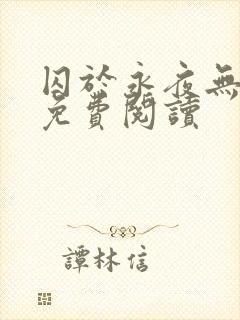 囚於永夜無
免費閱讀
譚林信